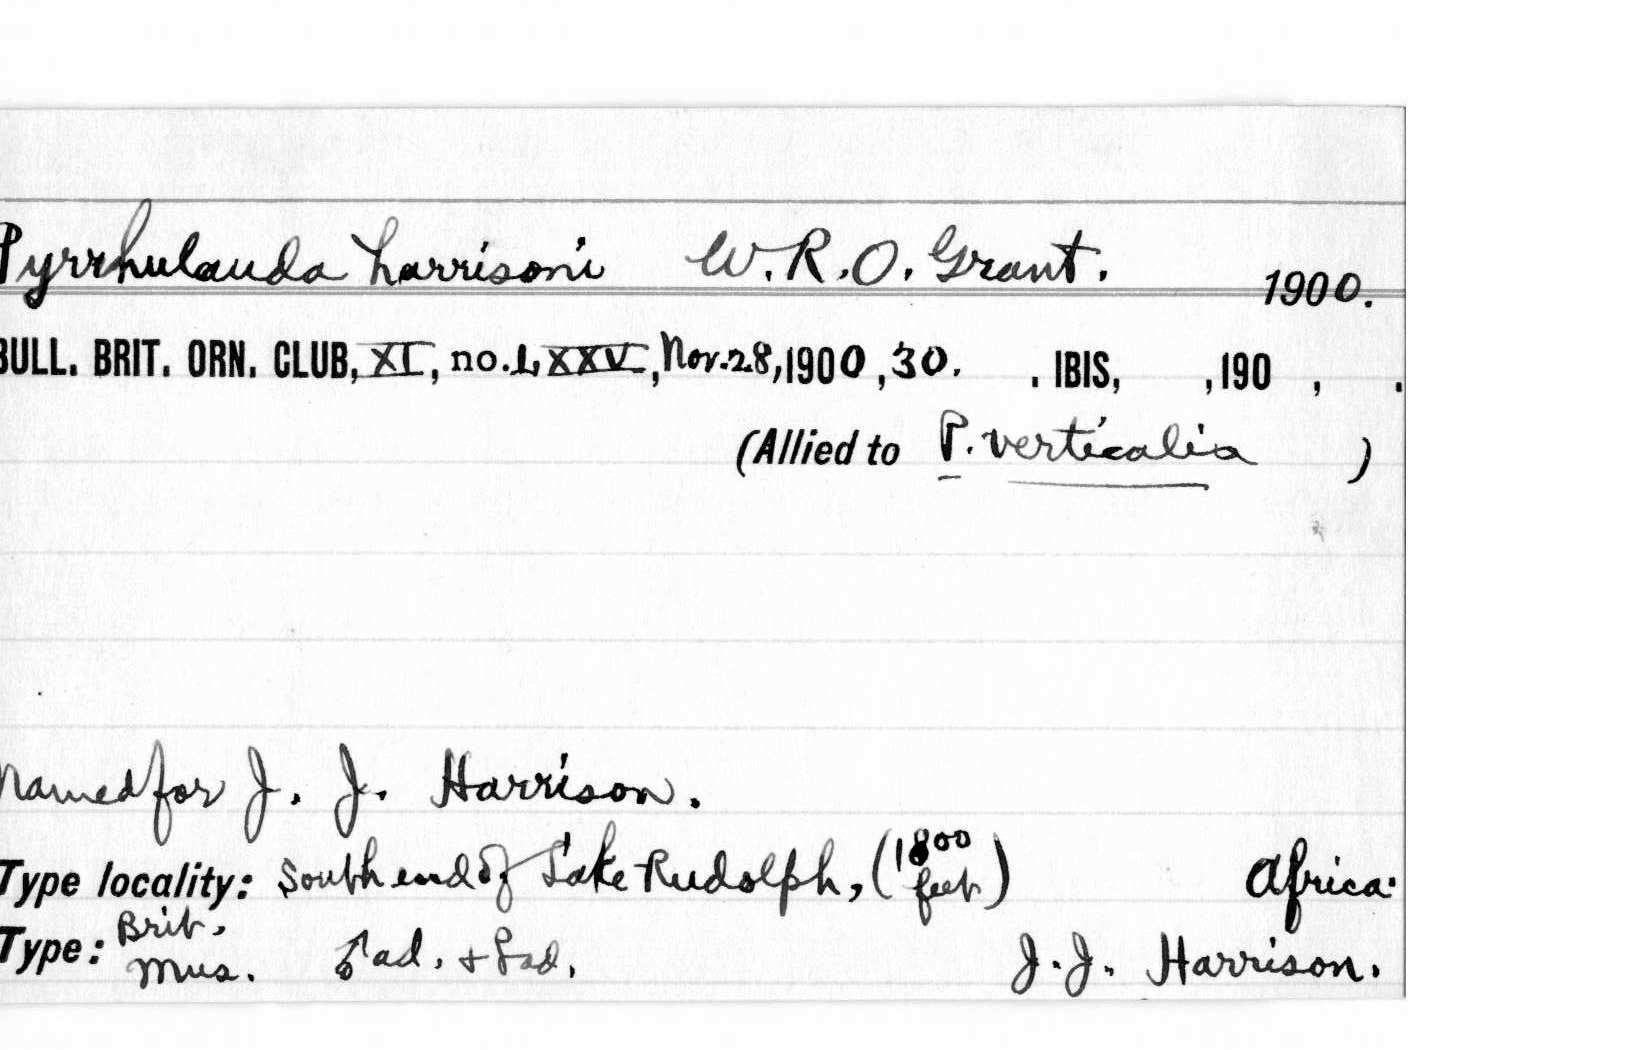 Pyrrhulauda harrisoni W. R. O. Grant. 1900.
BULL. BRIT. ORN. CLUB, XI, no. LXXV, Nov. 28, 1900, 30. . IBIS, , 190 , .
(Allied to P. verticalis )
Named for J. J. Harrison.
Type locality: South end of Lake Rudolph, (1800 feet) Africa.
Type: Brit. Mus. ♂ ad. + ♀ ad. J. J. Harrison.